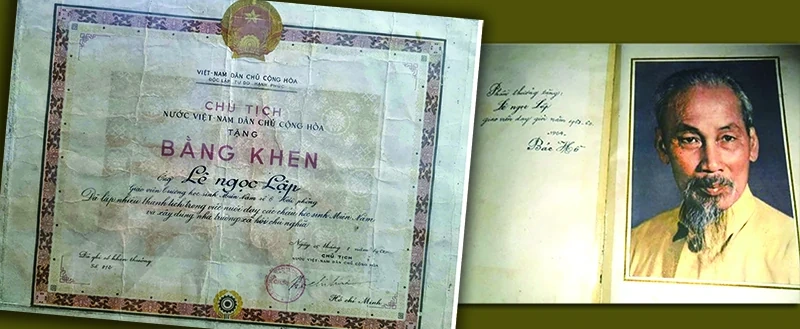 VIỆT-NAM DÂN CHỦ CỘNG HÒA
ĐỘC LẬP, TỰ DO, HẠNH PHÚC
CHỦ TỊCH
NƯỚC VIỆT-NAM DÂN CHỦ CỘNG HÒA
TẶNG
BẰNG KHEN
Ông Lê Ngọc Lập
Giáo viên Trường học sinh Miền Nam số 6 Hải phòng
Đã lập nhiều thành tích trong việc nuôi dạy các cháu học sinh Miền Nam
và xây dựng nhà trường xã hội chủ nghĩa
Đã ghi sổ khen thưởng
Số
Ngày tháng năm
CHỦ TỊCH
NƯỚC VIỆT-NAM DÂN CHỦ CỘNG HÒA
Hồ chí Minh
Phần thưởng tặng:
Lê ngọc Lập
giáo viên dạy giỏi năm
Bác Hồ